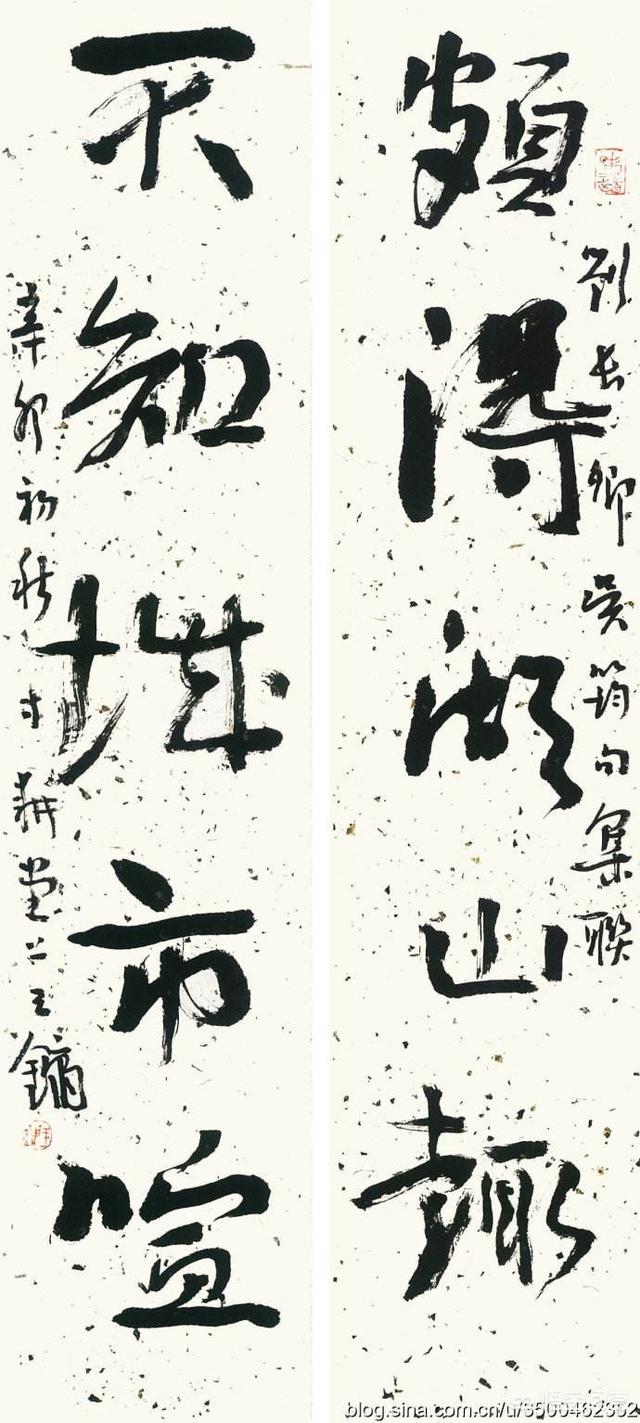 頗得湖山趣
劉長卿吴筠句集聯
不知城市喧
辛卯初秋
耕堂
王鏞
blog.sina.com.cn/u/3500462352